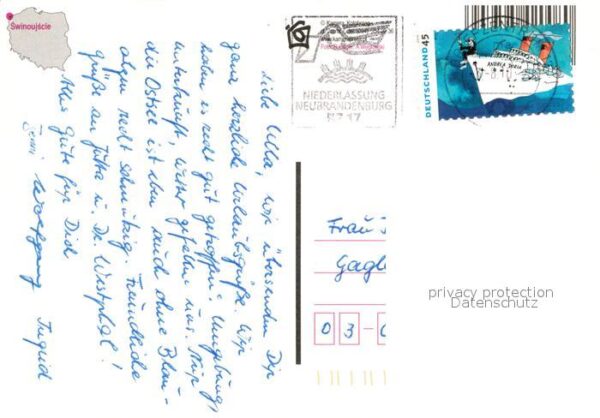 Świnoujście
Liebe Ulla, wir übersenden Dir
ganz herzliche Urlaubsgrüße. Wir
haben es recht gut getroffen. Umgebung,
Unterkunft, Wetter gefallen uns. Nur
die Ostsee ist eben auch ohne Blau-
algen recht schmutzig. Freundliche
Grüße an Jutta u. Dr. Westphal!
Alles Gute für Dich
Wolfgang Ingrid
NIEDERLASSUNG
NEUBRANDENBURG
BZ 17
DEUTSCHLAND 45
ANDREA DORIA
Frau
Gagl
03-
privacy protection
Datenschutz